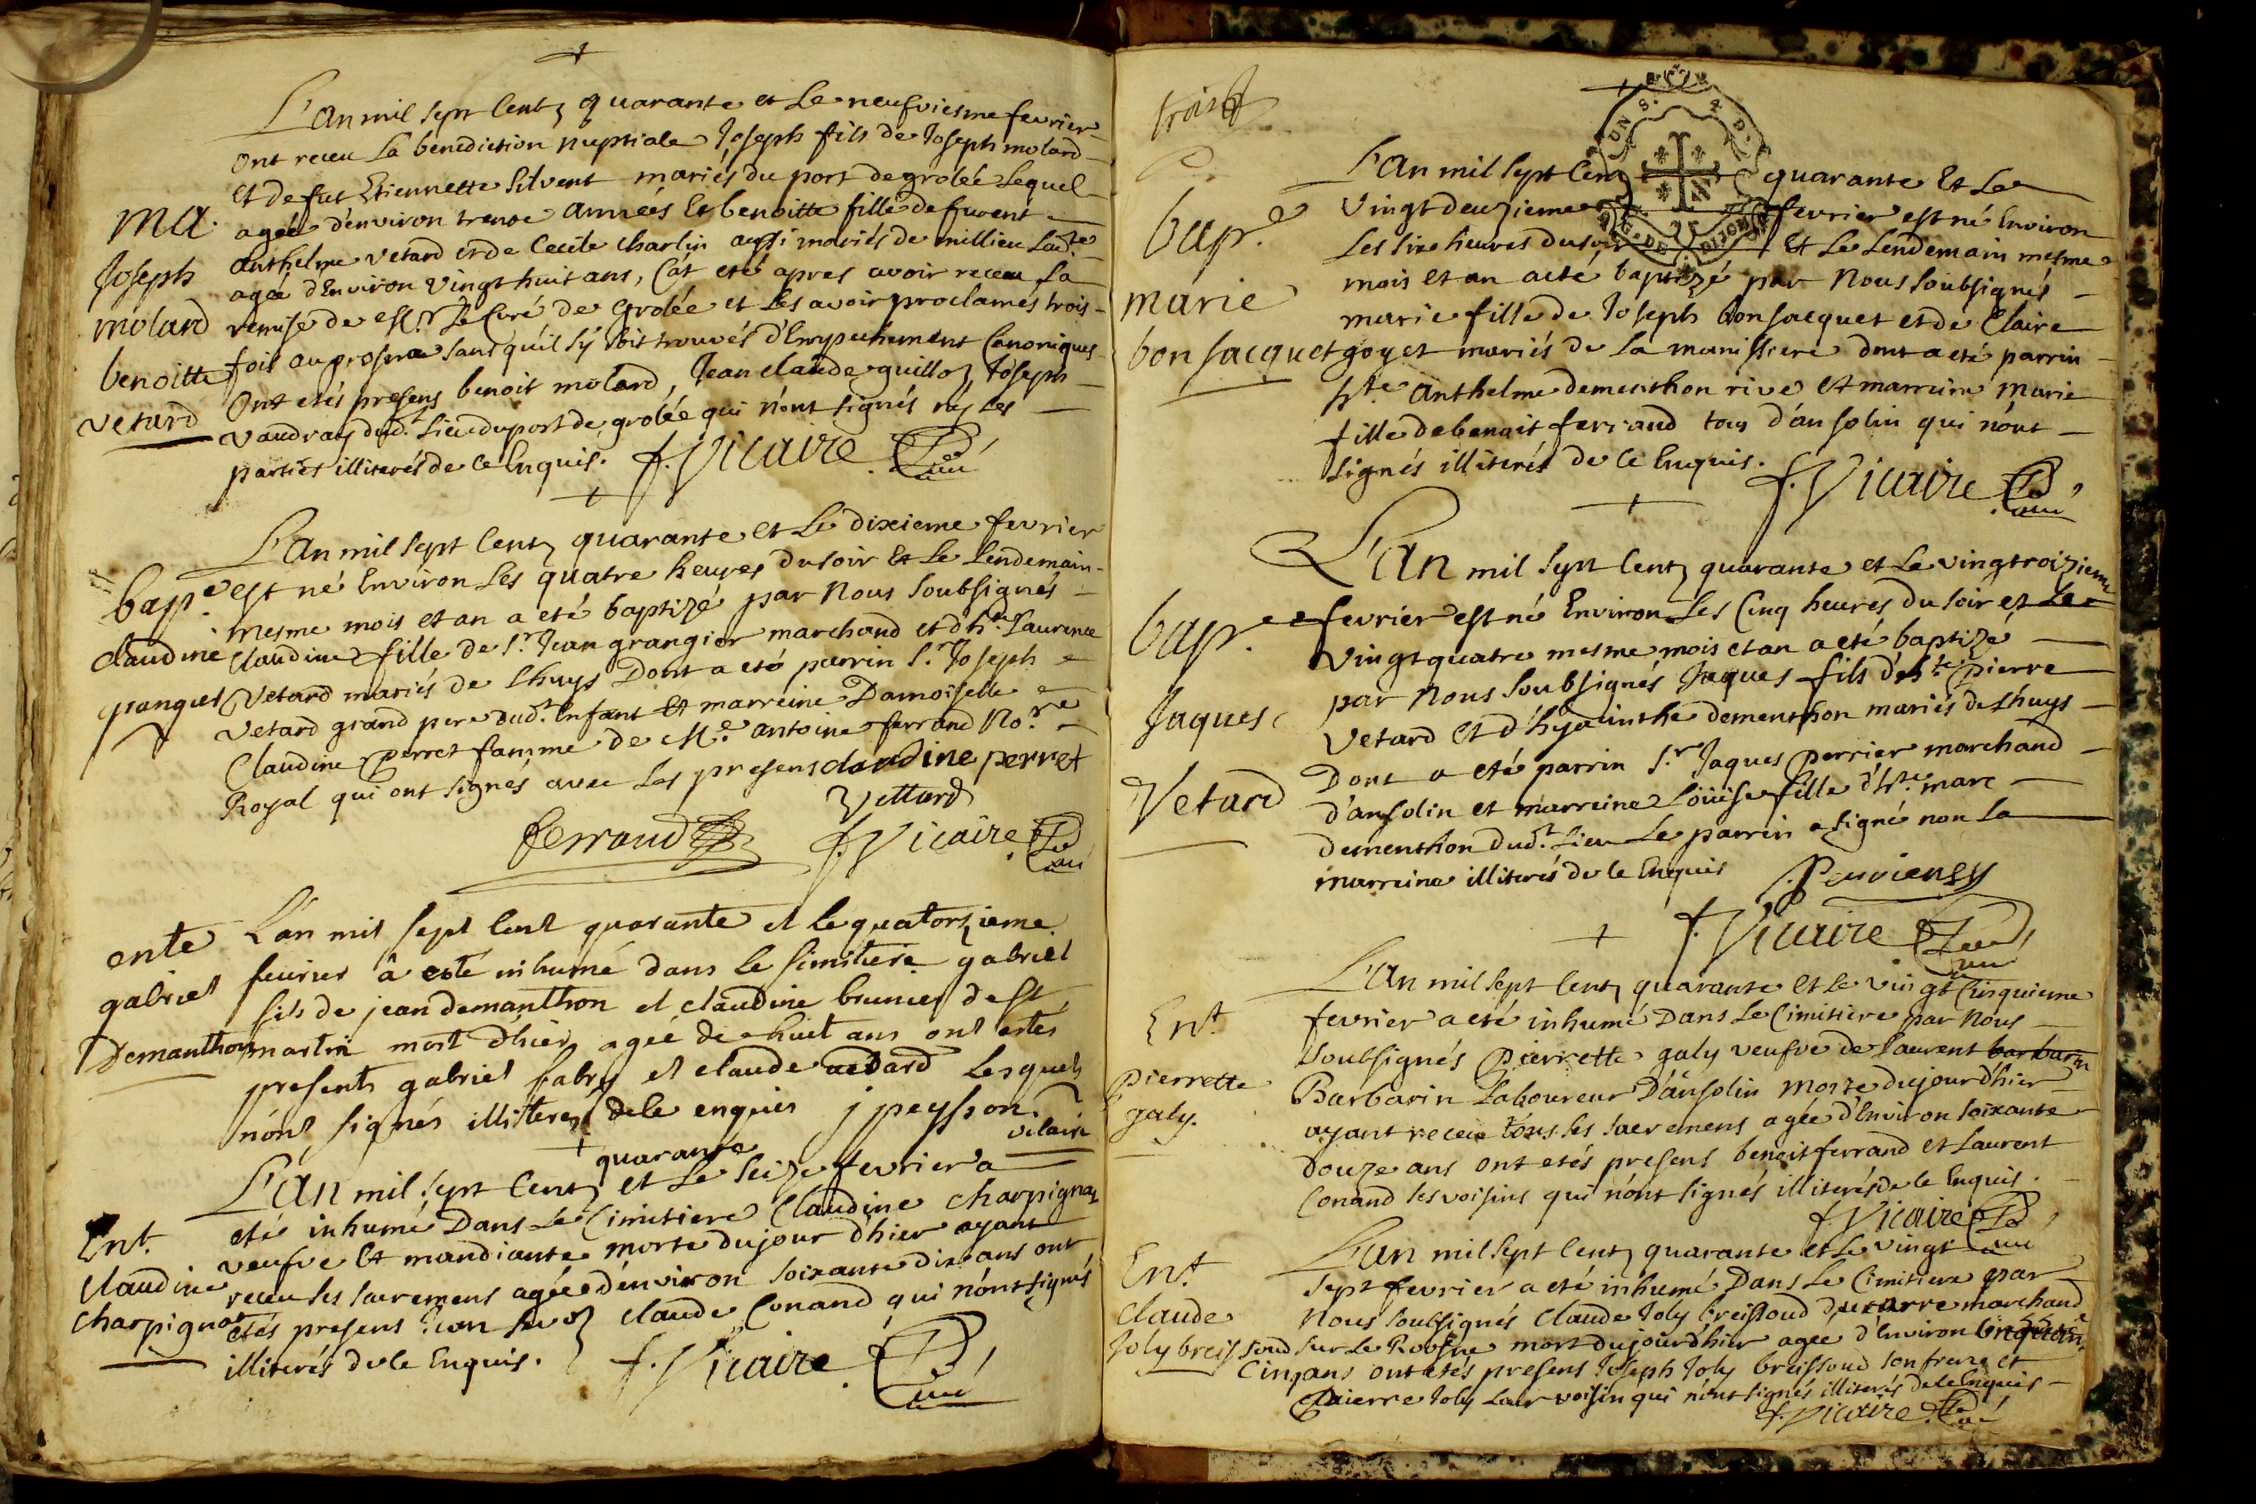 L'an mil sept Centz quarante et Le neufviesme fevrier
ont receu La benediction nuptiale Joseph fils de Joseph molard
et de fut Etiennette Silvent mariés du port de grolée Lequel
ma.
agée d'environ trente années Et benoitte fille de furent
Anthelme vetard et de Cecile Charlin aussi mariés de millieu
Joseph
agée d'Environ vingt huit ans, Cât eté apres avoir receu La
molard
remise de Mr Le Curé de Grolée et Les avoir proclamés trois
benoitte
fois au prosne sans qu'il s'y soit trouvés d'Empechement Canoniques
vetard
Ont etés presens benoit molard, Jean claude guilloz Joseph
vaudray dud.t Lieu du port de grolée qui n'ont signés ny Les
parties illiterés de ce Enquis. f. Vicaire
L'an mil sept Centz quarante et Le dixieme fevrier
bap.e
est né Environ Les quatre heures du soir Et Le Lendemain
mesme mois et an a eté baptizé par Nous soubsignés
claudine
Claudine fille de S.r Jean grangier marchand et d'h.te Laurence
Vetard mariés de Lhuys Dont a eté parrin S.r Joseph
vetard grand pere dud.t Enfant Et marreine Damoiselle
Claudine perret famme de M.e antoine ferrand No.re
Royal qui ont signés avec Les presens claudine perret
Vettard
ferrand f. Vicaire
ente
L'an mil sept cent quarante et le quatorzieme
gabriel
feuvrier â esté inhumé dans le simitiere gabriel
fils de jean demanthon et claudine brunier de st
Demanthon
martin mort d'hier agée de huit ans ont estés
presents gabriel fabry et claude vedard Lesquels
n'ont signés illisterez de le enquis j peysson
vicaire
quarante
L'An mil sept Centz et Le seize fevrier a
Ent.
eté inhumé Dans Le Cimitiere Claudine Charpignoz
veufve Et mandiante morte du jour d'hier ayant
claudine
receu les sacremens agée d'environ soixante dix ans ont
charpignoz
etés presens claude Conand qui n'ont signés
illiterés de le Enquis. f. Vicaire
trois
L'An mil sept Centz quarante Et Le
vingt deuzieme fevrier est né Environ
bap.e
Les six heures du soir Et Le Lendemain mesme
mois et an a eté baptizé par Nous soubsignés
marie
marie fille de Joseph bonJacquet et de Claire
bonJacquet
goyet mariés de La manissiere dont a eté parrin
h.te Anthelme dementhon rive et marreine Marie
fille de benoit ferrand tous d'ansolin qui n'ont
signés illiterés de Ce Enquis. f. Vicaire
L'An mil sept Centz quarante et Le vingtroizieme
fevrier est né Environ Les Cinq heures du soir et Le
bap.e
vingtquatre mesme mois et an a eté baptizé
par Nous soubsignés Jaques fils d'h.te Pierre
Jaques
Vetard Et d'hyacinthe dementhon mariés de Lhuys
Dont a eté parrin S.r Jaques perrier marchand
Vetard
d'ansolin et marreine Loüise fille d'h.te marc
dementhon dud.t Lieu Le parrin a signé non La
marreine illiterés de le Enquis
f. Vicaire
L'An mil sept Centz quarante Et Le vingt Cinquieme
Ent.
fevrier a eté inhumé Dans Le Cimitiere par Nous
soubsignés Pierrette galy veufve de Laurent barbarin
pierrette
Barbarin Laboureur D'ansolin Morte du jour d'hier
galy.
ayant receu tous les sacremens agée d'Environ soixante
douze ans ont etés presens benoit ferrand et Laurent
Conand ses voisins qui n'ont signés illiterés de le Enquis.
f. Vicaire
L'an mil sept Centz quarante et Le vingt
Ent.
sept fevrier a eté inhumé Dans Le Cimitiere par
Claude
Nous soubsignés Claude Joly breissoud marchand
Joly breissoud
sur Le Roosne mort du jour d'hier agee d'Environ Cinquante
Cinq ans ont etés presens Joseph Joly breissoud son frere et
Pierre Joly Leur voisin qui n'ont signés illiterés de le Enquis
f. Vicaire